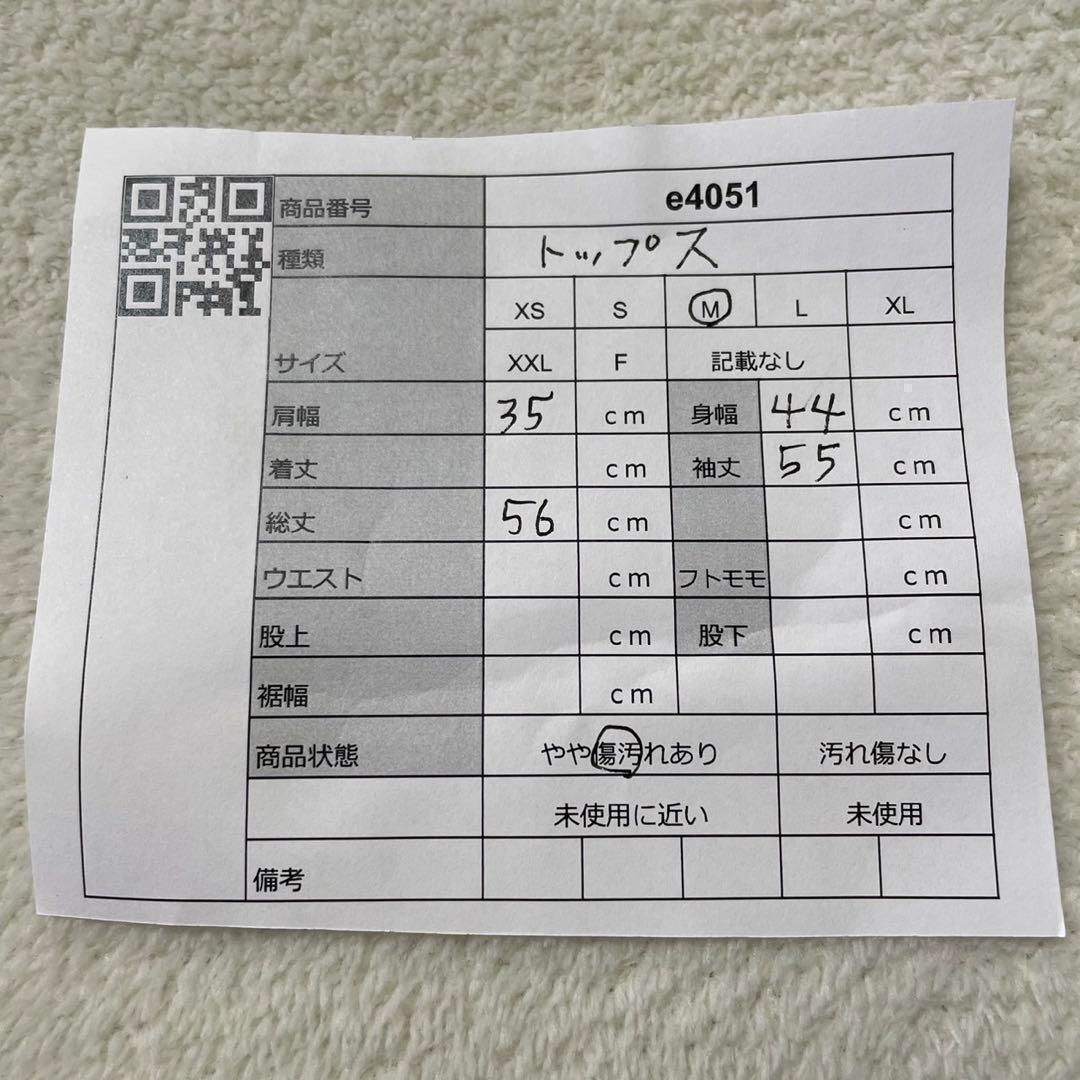 商品番号 e4051
種類 トップス
XS S M L XL
サイズ XXL F 記載なし
肩幅 35 cm 身幅 44 cm
着丈 cm 袖丈 55 cm
総丈 56 cm cm
ウエスト cm フトモモ cm
股上 cm 股下 cm
裾幅 cm
商品状態 やや傷汚れあり 汚れ傷なし
未使用に近い 未使用
備考